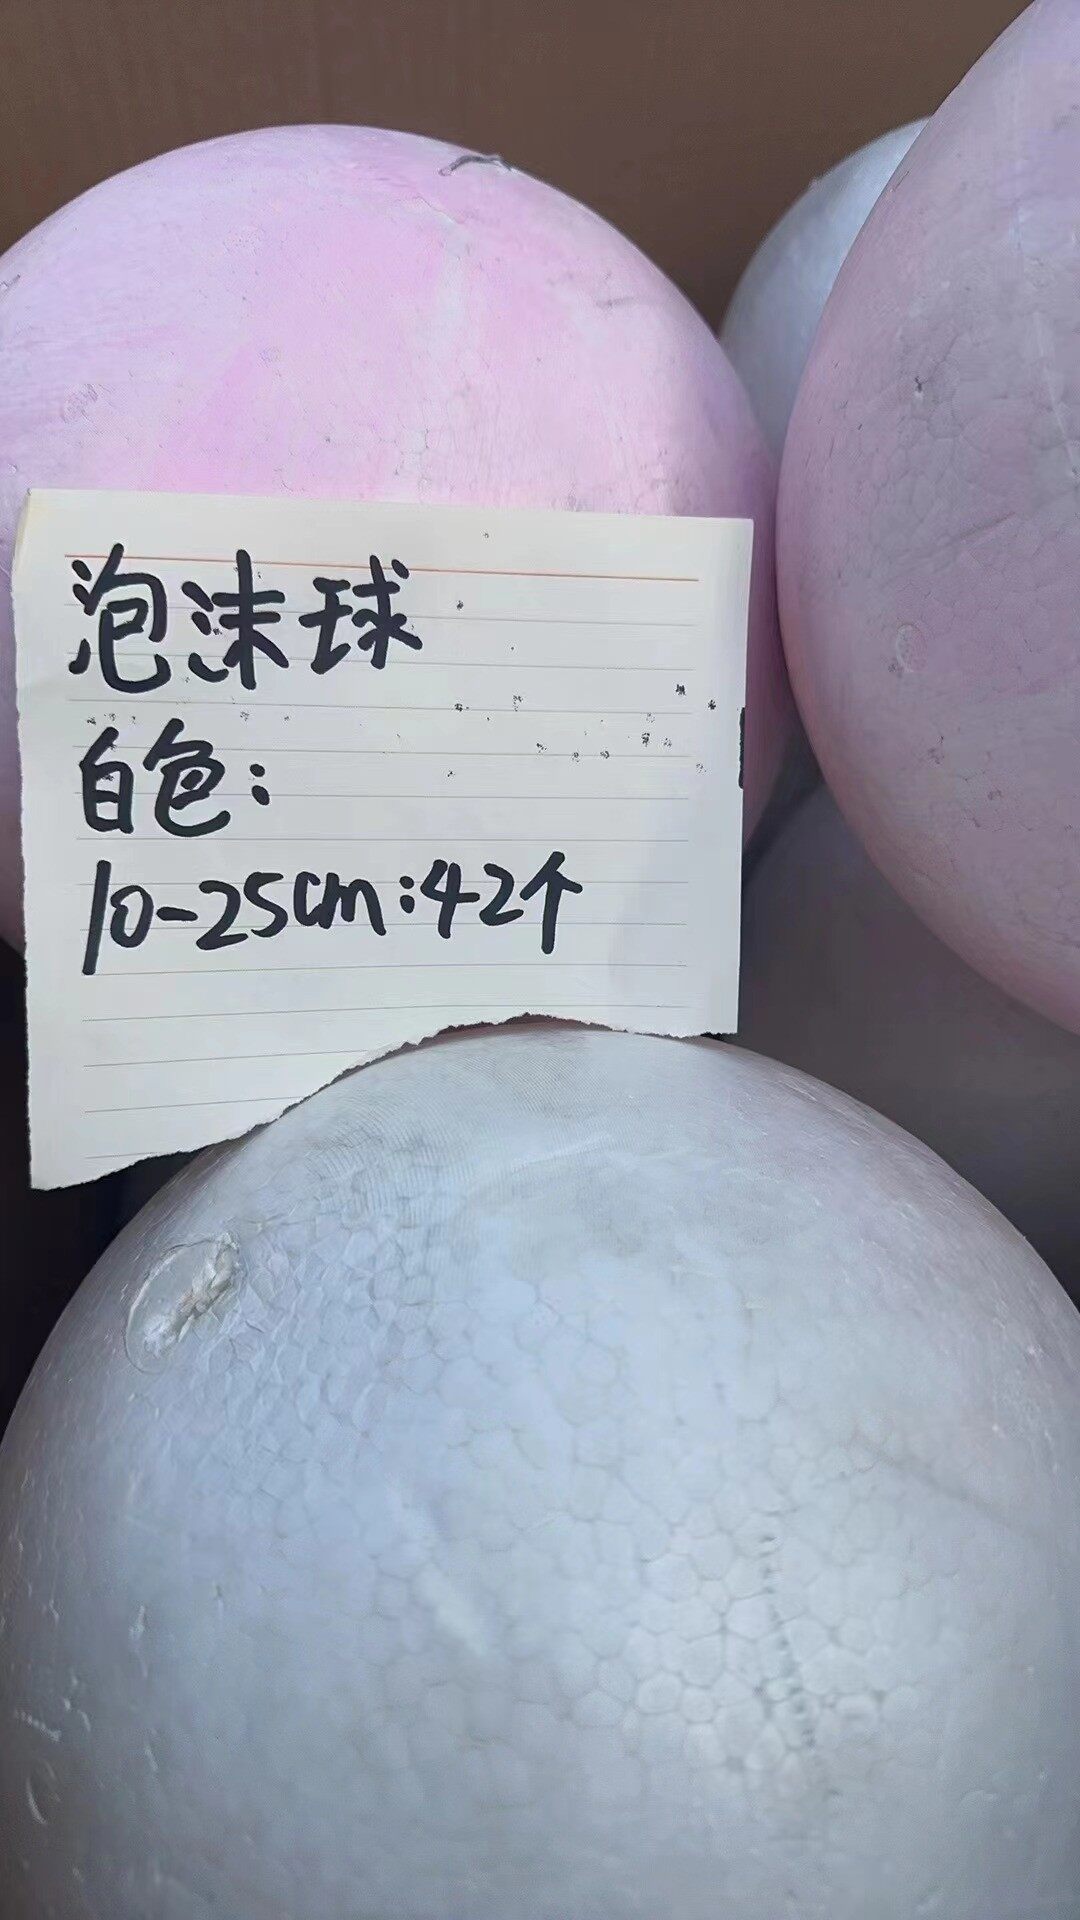 泡沫球
白色：
10-25cm:42个